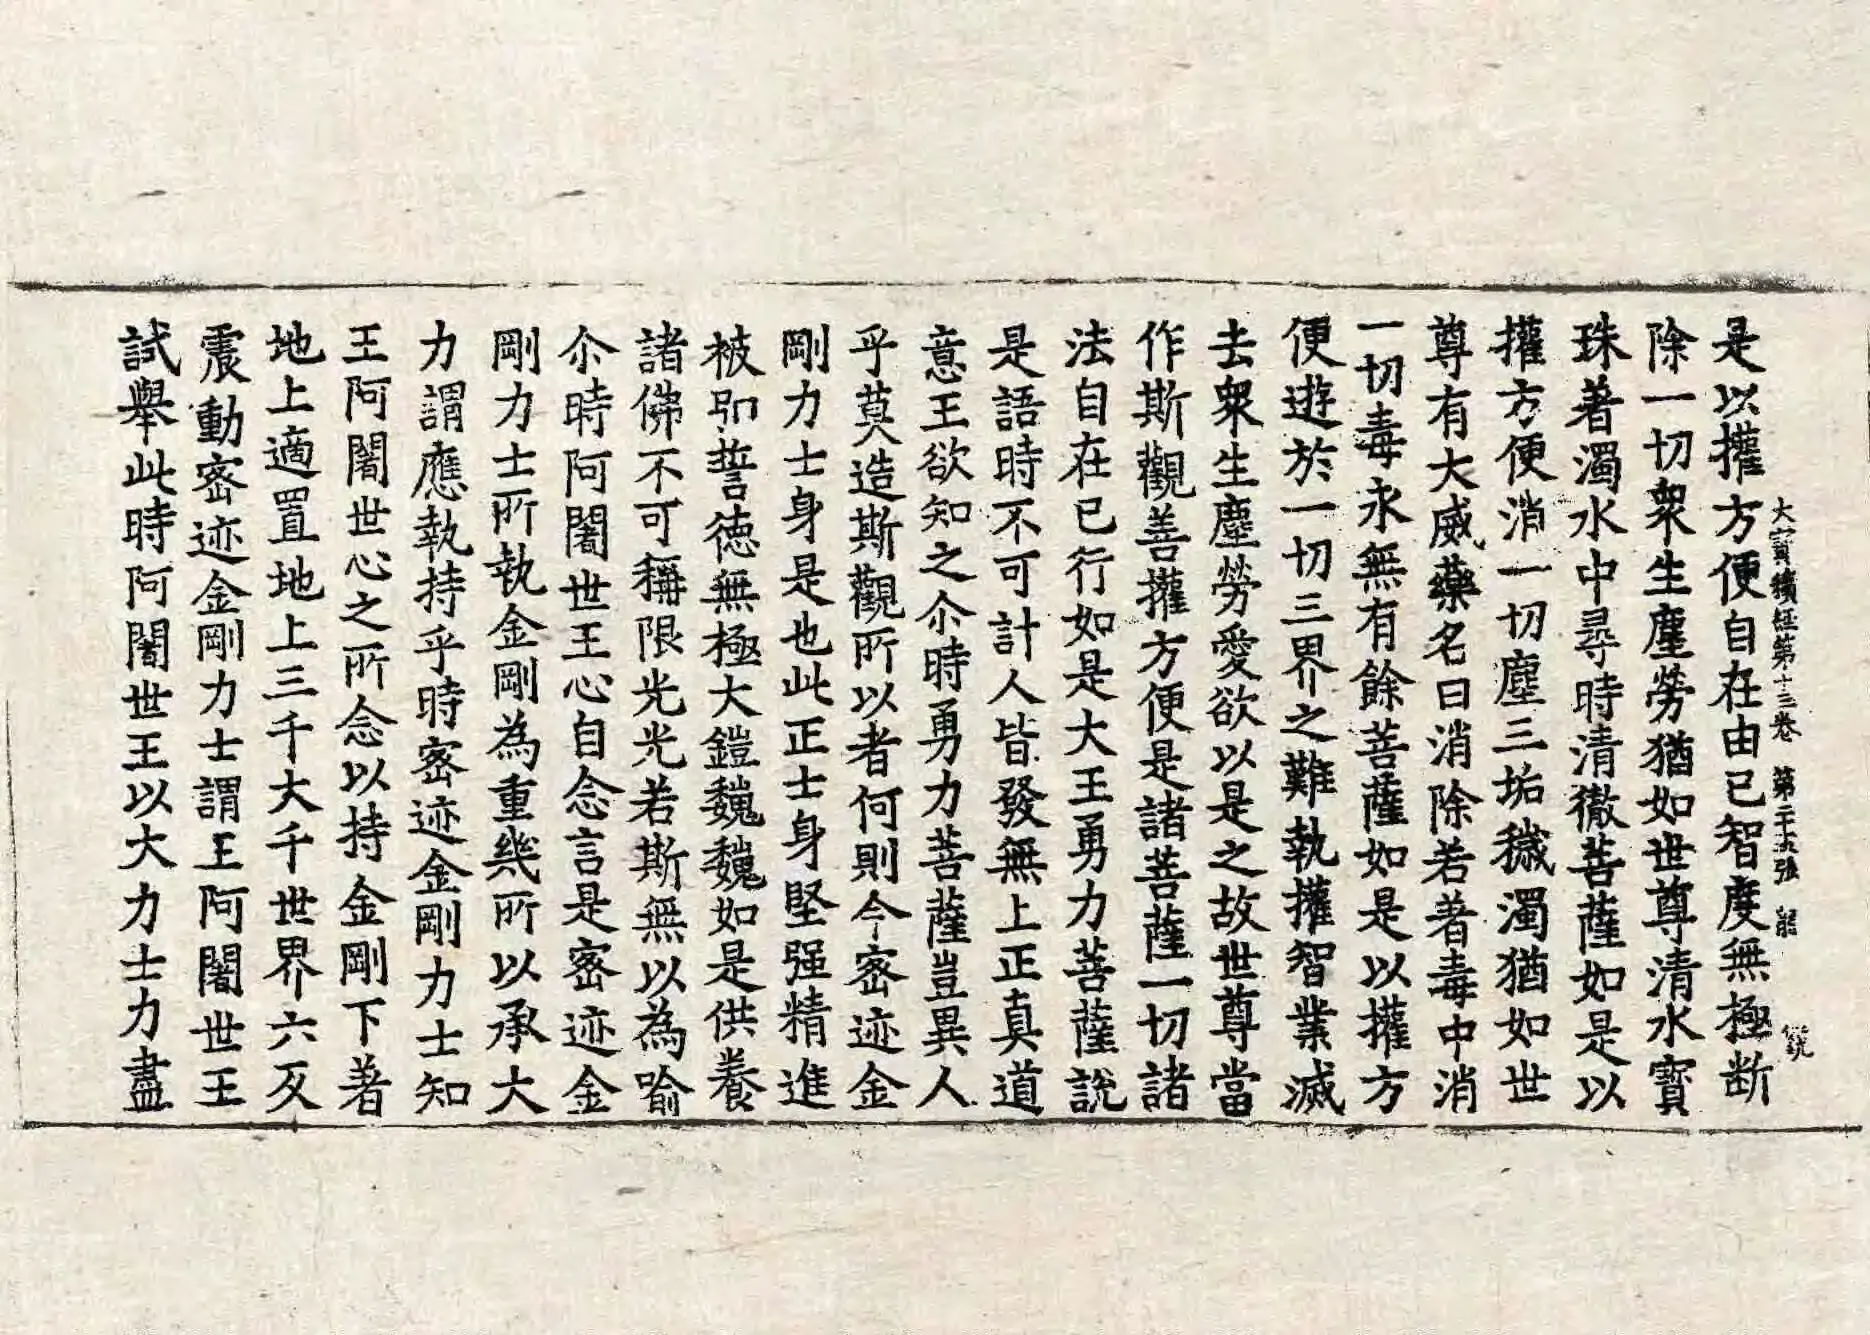 大寶積經第十三卷 第二十五張 龍
是以權方便自在由已智度無極断
除一切衆生塵勞猶如世尊清水寳
珠著濁水中尋時清徹菩薩如是以
權方便消一切塵三垢穢濁猶如世
尊有大威藥名曰消除若著毒中消
一切毒永無有餘菩薩如是以權方
便遊於一切三界之難執權智業滅
去衆生塵勞愛欲以是之故世尊當
作斯觀善權方便是諸菩薩一切諸
法自在已行如是大王勇力菩薩說
是語時不可計人皆發無上正真道
意王欲知之尒時勇力菩薩豈異人
乎莫造斯觀所以者何則今密迹金
剛力士身是也此正士身堅强精進
被卬誓德無極大鎧巍巍如是供養
諸佛不可稱限光光若斯無以為喻
尒時阿闍世王心自念言是密迹金
剛力士所執金剛為重幾所以承大
力謂應執持乎時密迹金剛力士知
王阿闍世心之所念以持金剛下著
地上適置地上三千大千世界六反
震動密迹金剛力士謂王阿闍世王
試舉此時阿闍世王以大力士力盡